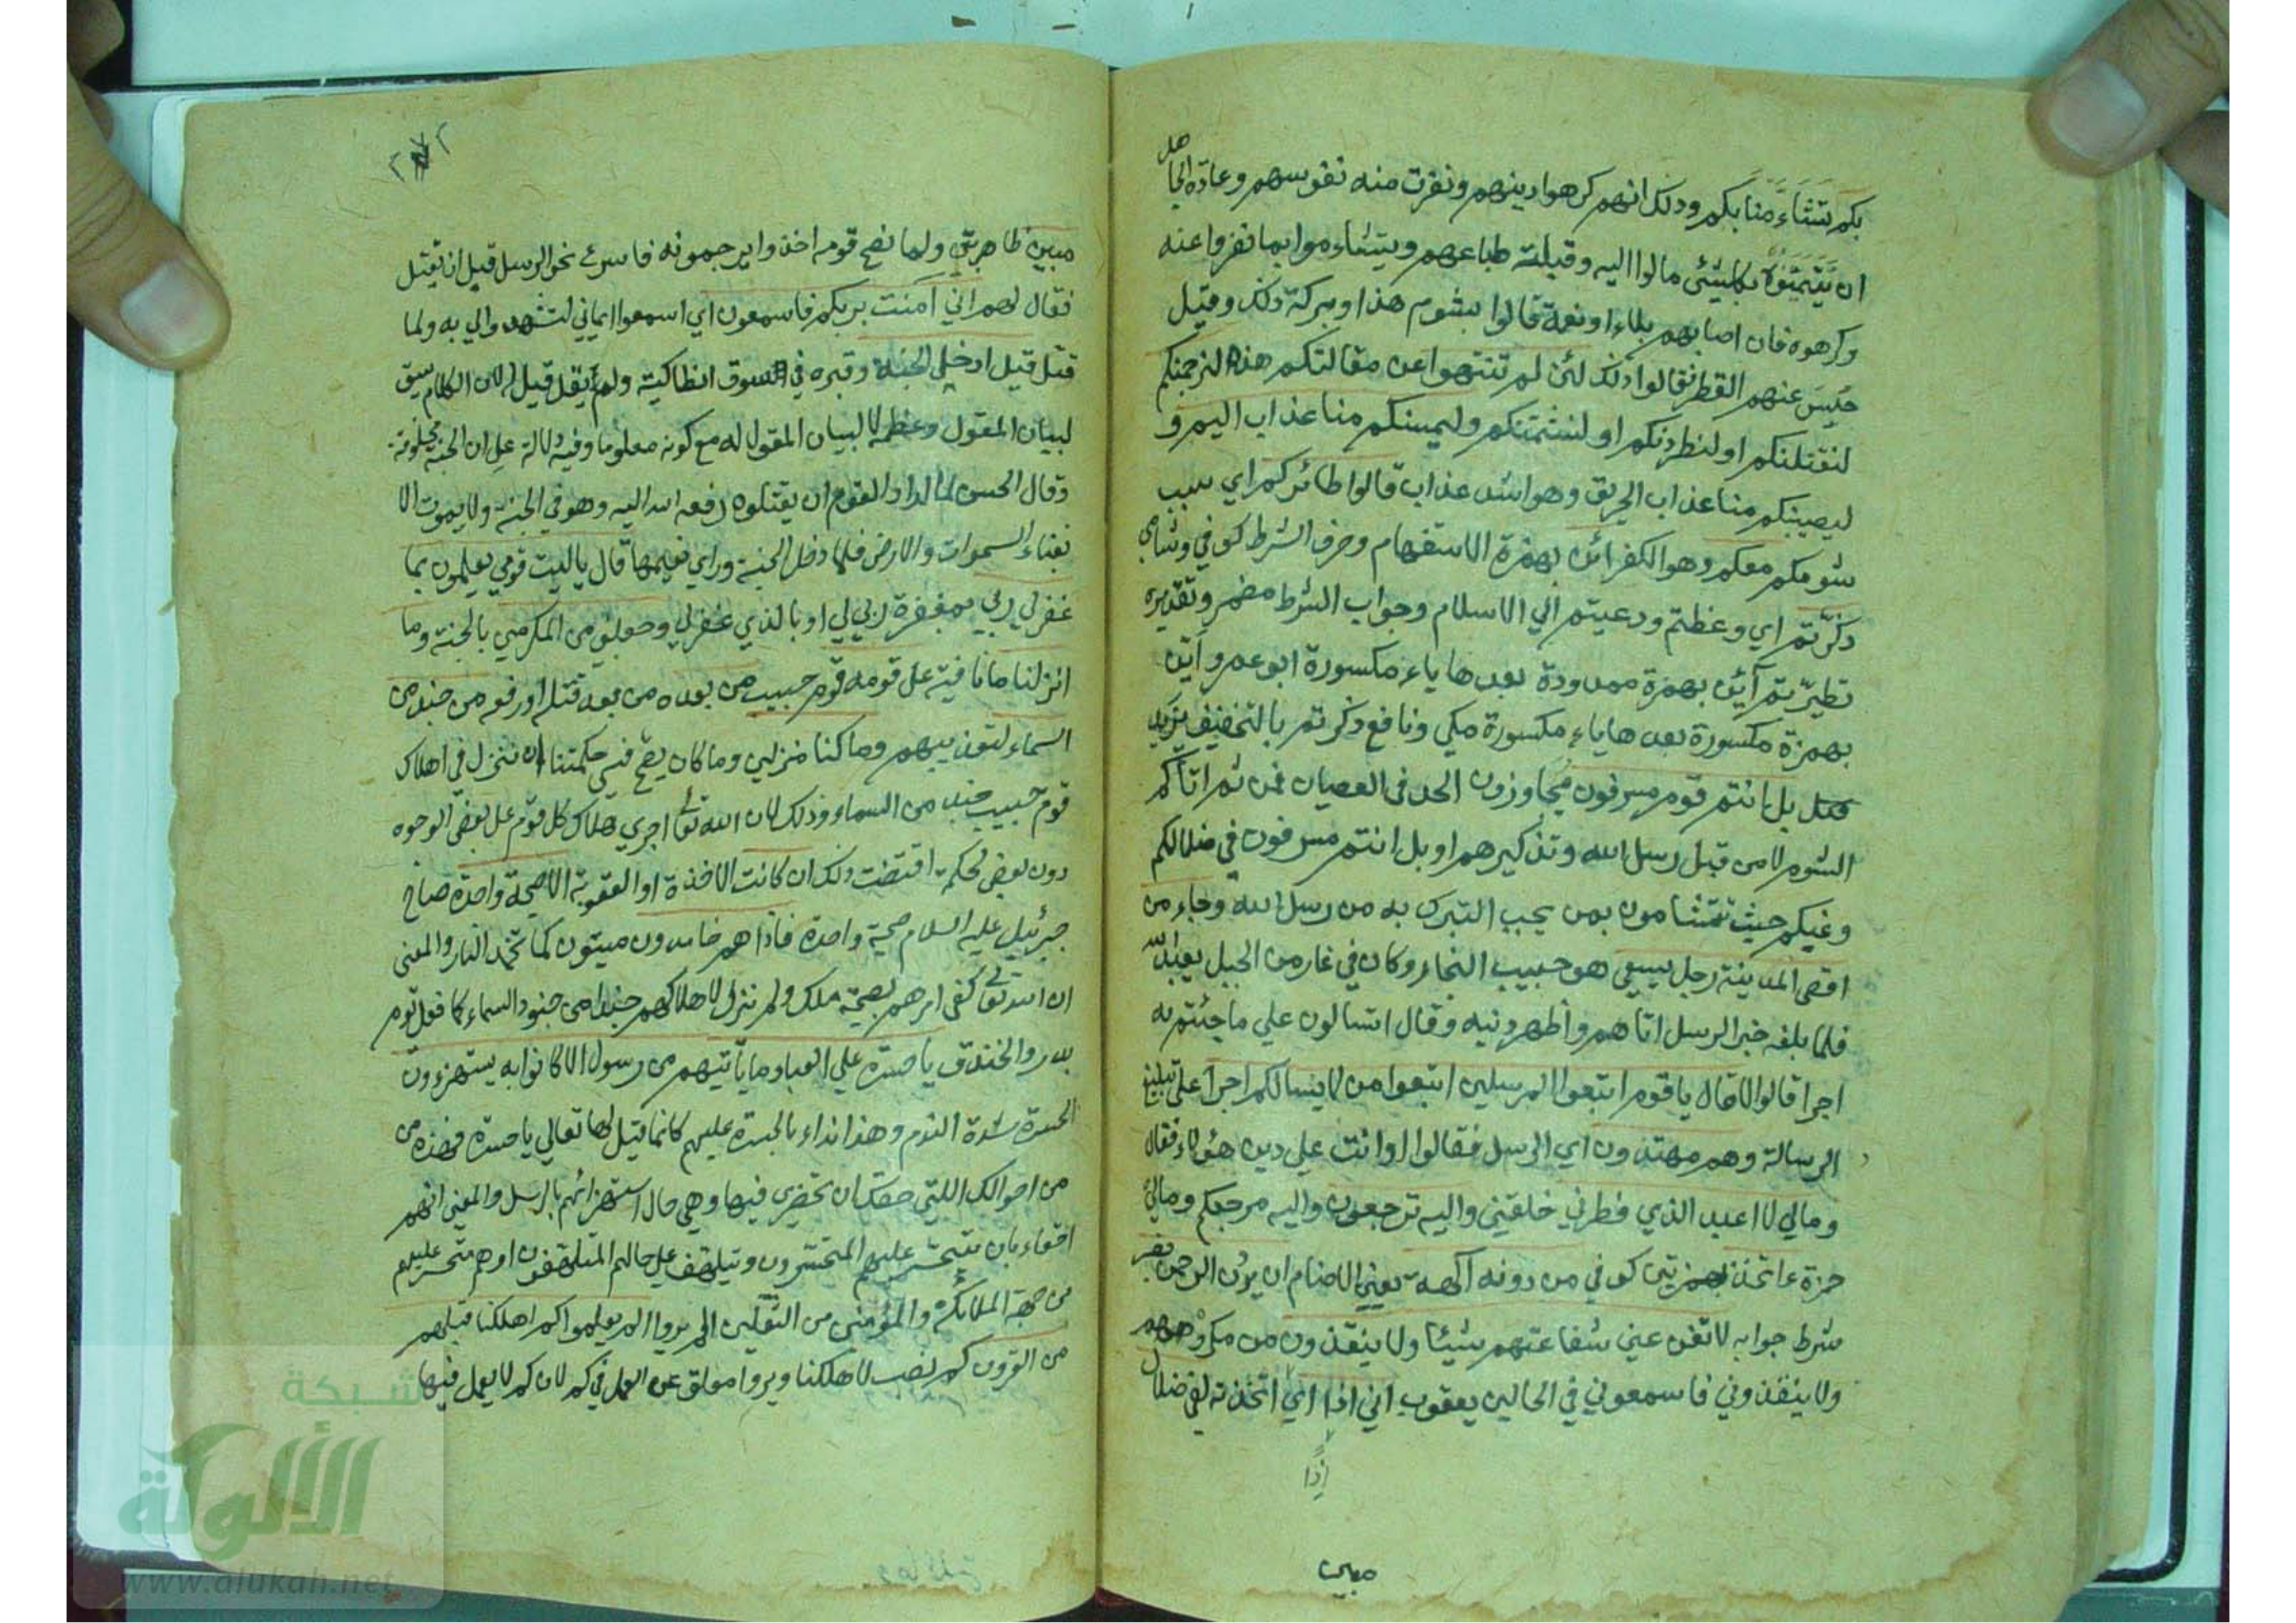 بكم تشاء منا بكم وذلك انهم كرهوا دينهم ونفرت منه نفوسهم وعادة الجا
هل
ان يتيمنوا بكل شئ مالوا اليه وقبلته طباعهم ويتشاءموا بما نفروا عنه
وكرهوه فان اصابهم بلاء او نعمة قالوا بشوم هذا او ببركة ذلك وقيل
حبس عنهم القطر فقالوا ذلك لئن لم تنتهوا عن مقالتكم هذه لنرجمنكم
لنقتلنكم او لنطردنكم او لنشتمنكم وليمسنكم منا عذاب اليم و
ليصيبنكم منا عذاب الحريق وهو اشد عذاب قالوا طائركم اي سبب
شومكم معكم وهو الكفر ائن بهمزة الاستفهام وحرف الشرط كوفي وشامي
ذكرتم اي وعظتم ودعيتم الي الاسلام وجواب الشرط مضمر وتقديره
تطيرتم آئن بهمزة ممدودة بعدها ياء مكسورة ابو عمرو أين
بهمزة مكسورة بعدها ياء مكسورة مكي ونافع ذكرتم بالتخفيف يزيد
بل انتم قوم مسرفون مجاوزون الحد في العصيان فمن ثم اتاكم
الشوم لا من قبل رسل الله وتذكيرهم او بل انتم مسرفون في ضلالكم
وغيكم حيث تتشامون بمن يجب التبرك به من رسل الله وجاء من
اقصى المدينة رجل يسعى هو حبيب النجار وكان في غار من الجبل يعبد الله
فلما بلغه خبر الرسل اتاهم وأظهر دنيه وقال اتسالون علي ما جئتم به
اجرا قالوا لا قال يا قوم اتبعوا المرسلين اتبعوا من لا يسالكم اجرا على تبليغ
الرسالة وهم مهتدون اي الرسل فقالوا او انت علي دين هؤلاء فقال
ومالي لا اعبد الذي فطرني خلقني واليه ترجعون واليه مرجعكم ومالي
حمزة ءاتخذ بهمزتين كوفي من دونه آلهة يعني الاصنام ان يردن الرحمن بضر
شرط جوابه لا تغن عني شفاعتهم شيئا ولا ينقذون من مكروههم
ولا ينقذوني فاسمعوني في الحالين يعقوب اني اذا اي اتخذته لفي ضلال
إذًا
مبين
مبين ظاهر بين ولما نصح قومه اخذوا يرجمونه فاسرع نحو الرسل قبل ان يقتل
فقال لهم اني آمنت بربكم فاسمعون اي اسمعوا ايماني لتشهدوا لي به ولما
قتل قيل ادخل الجنة وقبره في السوق انطاكية ولم يقل قيل له لان الكلام سيق
لبيان المقول وعظمه لا لبيان المقول له مع كونه معلوما وفيه دلالة علي ان الجنة مخلوقة
وقال الحسن لما اراد القوم ان يقتلوه رفعه الله اليه وهو في الجنة ولا يموت الا
بفناء السموات والارض فلما دخل الجنة وراي نعيمها قال يا ليت قومي يعلمون بما
غفر لي ربي بمغفرة ربي لي او بالذي غفر لي وجعلني من المكرمين بالجنة وما
انزلنا ما نافية على قومه قوم حبيب من بعده من بعد قتله او رفعه من جند من
السماء لتعذيبهم وما كنا منزلين وما كان يصح في حكمتنا ان ننزل في اهلاك
قوم حبيب جند من السماء وذلك لان الله تعالى اجري هلاك كل قوم على بعض الوجوه
دون بعض لحكمة اقتضت ذلك ان كانت الاخذة او العقوبة الا صيحة واحدة صاح
جبرئيل عليه السلام صيحة واحدة فاذا هم خامدون ميتون كما تخمد النار والمعنى
ان الله تعالى كفى امرهم بصيحة ملك ولم ننزل لاهلاكهم جندا من جنود السماء كما فعل يوم
بدر والخندق يا حسرة علي العباد ما يأتيهم من رسول الا كانوا به يستهزءون
الحسرة شدة الندم وهذا نداء بالحسرة عليهم كانما قيل لها تعالي يا حسرة فهذه من
من احوالك اللتي حقك ان تحضري فيها وهي حال استهزائهم بالرسل والمعنى انهم
احقاء بان يتحسر عليهم المتحسرون ويتلهف على حالهم المتلهفون او هم متحسر عليهم
من جهة الملائكة والمؤمنين من الثقلين الم يروا الم يعلموا كم اهلكنا قبلهم
من القرون كم نصب لاهلكنا ويروا معلق عن العمل في كم لان كم لا يعمل فيها
شبكة
الألوكة
www.alukah.net